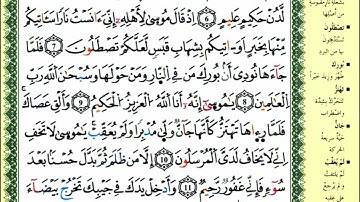 لَّدُنْ حَكِيمٍ عَلِيمٍ ٦ إِذْ قَالَ مُوسَىٰ لِأَهْلِهِۦٓ إِنِّيَ ءَانَسْتُ نَارًا سَـَٔاتِيكُم
مِّنْهَا بِخَبَرٍ أَوْ ءَاتِيكُم بِشِهَابِ قَبَسٍ لَّعَلَّكُمْ تَصْطَلُونَ ٧ فَلَمَّا
جَآءَهَا نُودِيَ أَنۢ بُورِكَ مَن فِي ٱلنَّارِ وَمَنْ حَوْلَهَا وَسُبْحَٰنَ ٱللَّهِ رَبِّ
ٱلْعَٰلَمِينَ ٨ يَٰمُوسَىٰٓ إِنَّهُۥٓ أَنَا ٱللَّهُ ٱلْعَزِيزُ ٱلْحَكِيمُ ٩ وَأَلْقِ عَصَاكَ
فَلَمَّا رَءِاهَا تَهْتَزُّ كَأَنَّهَا جَآنٌّ وَلَّىٰ مُدْبِرًا وَلَمْ يُعَقِّبْ يَٰمُوسَىٰ لَا تَخَفِ
اِنِّي لَا يَخَافُ لَدَيَّ ٱلْمُرْسَلُونَ ١٠ إِلَّا مَن ظَلَمَ ثُمَّ بَدَّلَ حُسْنًۢا بَعْدَ
سُوٓءٍ فَإِنِّي غَفُورٌ رَّحِيمٌ ١١ وَأَدْخِلْ يَدَكَ فِي جَيْبِكَ تَخْرُجْ بَيْضَآءَ
تصطلون
بورك
تهتز
جان
لم يعقب